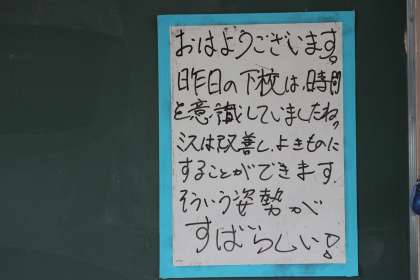 おはようございます。
昨日の下校は、時間
を意識していましたね。
ミスは改善し、よきものに
することができます.
そういう姿勢が
すばらしい!